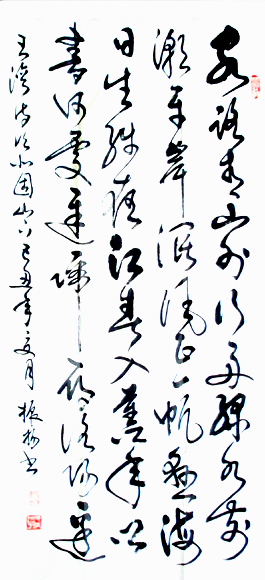 客路青山外行舟绿水前
潮平岸阔风正一帆悬海
日生残夜江春入舊年乡
書何处達归雁洛陽边
王湾诗次北固山下己丑年夏月振书